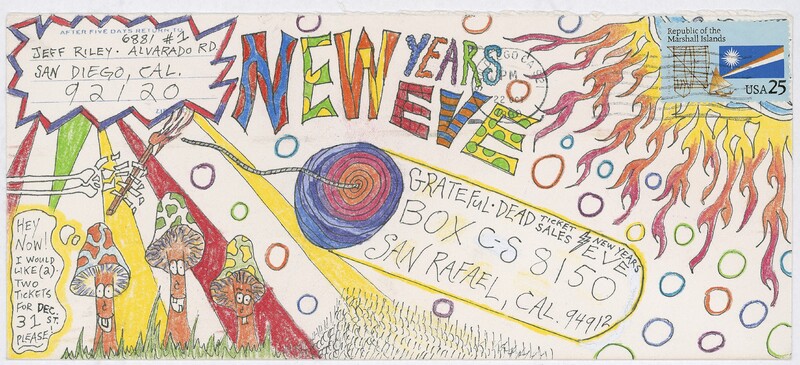 AFTER FIVE DAYS RETURN TO
6881 #1
JEFF RILEY. ALVARADO RD.
SAN DIEGO, CAL.
92120
NEW YEARS
EVE
22 OCT
Republic of the
Marshall Islands
USA 25
HEY
NOW!
I WOULD
LIKE (2).
TWO
TICKETS
FOR DEC.
31 ST.
PLEASE!
GRATEFUL·DEAD TICKET SALES 4 NEW YEARS EVE
BOX C-S 8150
SAN RAFAEL, CAL. 94912